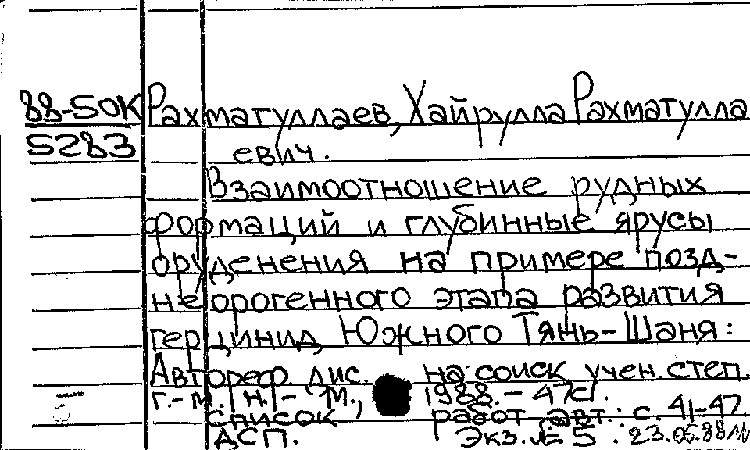 88-50К Рахматуллаев, Хайрулла Рахматулла
5283 евич.
Взаимоотношение рудных
формаций и глубинные ярусы
оруденения на примере позд-
неорогенного этапа развития
герцинид Южного Тянь-Шаня:
Автореф. дис. на соиск. учен. степ.
г.-м. н. - М., 1988. - 47 с.
Список работ авт.: с. 41-47.
ДСП. Экз. № 5. 23.05.88